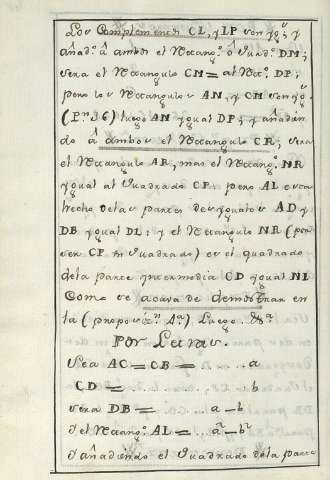 Los Complementos CL, y LP son yg.s y
añad.o â ambos el Rectang.o ô Quad.o DM;
sera el Rectangulo CM = al Rec.o DP;
pero los Rectangulos AN, y CM son yg.s
(Pr. 36) luego AN ygual DP; y añadien
do â ambos el Rectangulo CR, sera
el Rectangulo AR, mas el Rectang.o NR
ygual al Quadrado CP: pero AL esta
hecho de las partes desiguales AD y
DB ygual DL: y el Rectangulo NR (por
ser CP su Quadrado) es el quadrado
de la parte yntermedia CD ygual NL
Como se acava de demostrar en
la (propos.n 4.a) Luego &.a
Por Letras.
Sea AC = CB = ... a
CD = ... b
sera DB = ... a - b
Y el Rectang.o AL = ... a² - b²
Y añadiendo el Quadrado de la parte